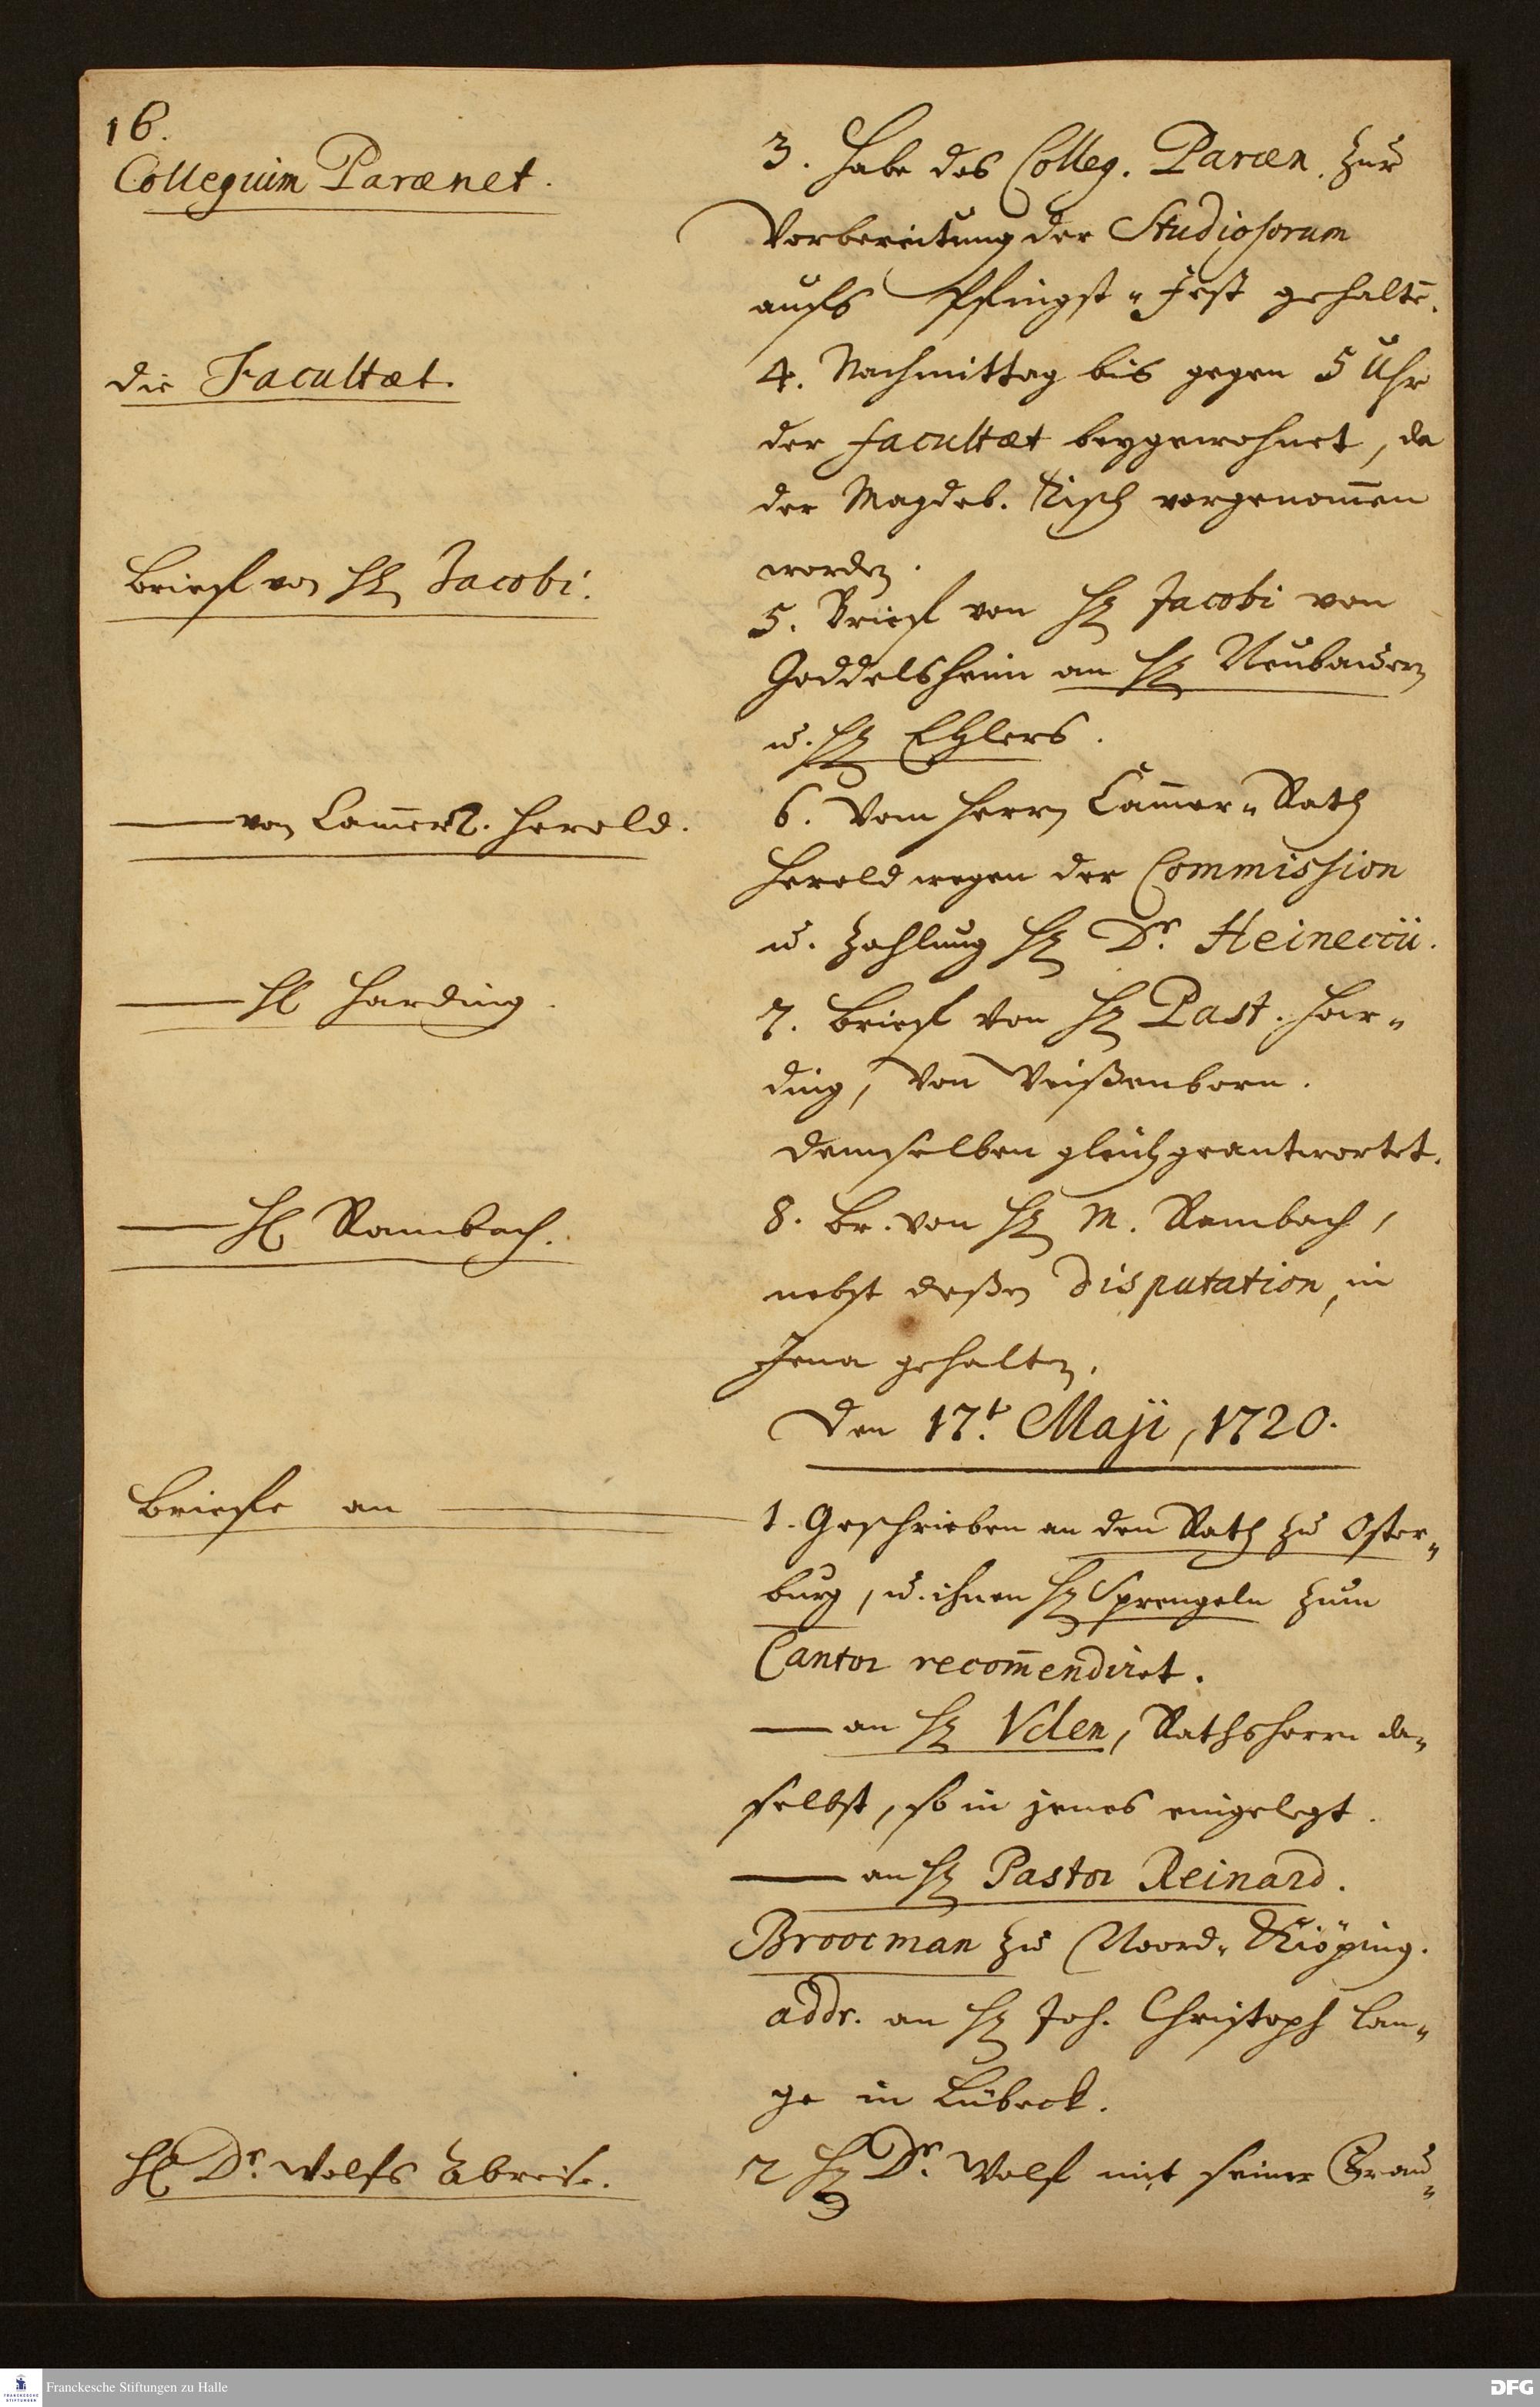 16.
Collegium Parænet.
3. Habe das Colleg. Paræn. zur
Vorbereitung der Studiosorum
aufs Pfingst-Fest gehalte̅.
die Facultæt.
4. Nachmittag bis gegen 5 Uhr
der Facultæt beygewohnet, da
der Magdeb. Tisch vorgenom̅en
worden.
Brief von H. Jacobi.
5. Brief von H. Jacobi von
Goddelsheim an H. Neubauern
u. H. Ehlers.
— von Cam̅erR. Herold.
6. Vom Herrn Cam̅er-Rath
Herold wegen der Commission
u. Zahlung H. Dr. Heineccii.
— H. Harding.
7. Brief von H. Past. Har-
ding, von Weißenborn.
demselben gleich geantwortet.
— H. Rambach.
8. Br. von H. M. Rambach,
nebst deßen disputation, in
Jena gehalten.
Den 17t. Maji, 1720.
Briefe an —
1. Geschrieben an den Rath zu Oster-
burg, u. ihnen H. Sprengeln zum
Cantor recom̅endiret.
— an H. Vden, Rathsherrn da-
selbst, so in jenes eingelegt.
— an H. Pastor Reinard.
Broocman zu Noord-Kiöping.
addr. an H. Joh. Christoph Lan-
ge in Lübeck.
H. Dr. Wolfs Abreise.
2 H. Dr. Wolf mit seiner Brau-
Franckesche Stiftungen zu Halle
FRANCKESCHE
STIFTUNGEN
DFG